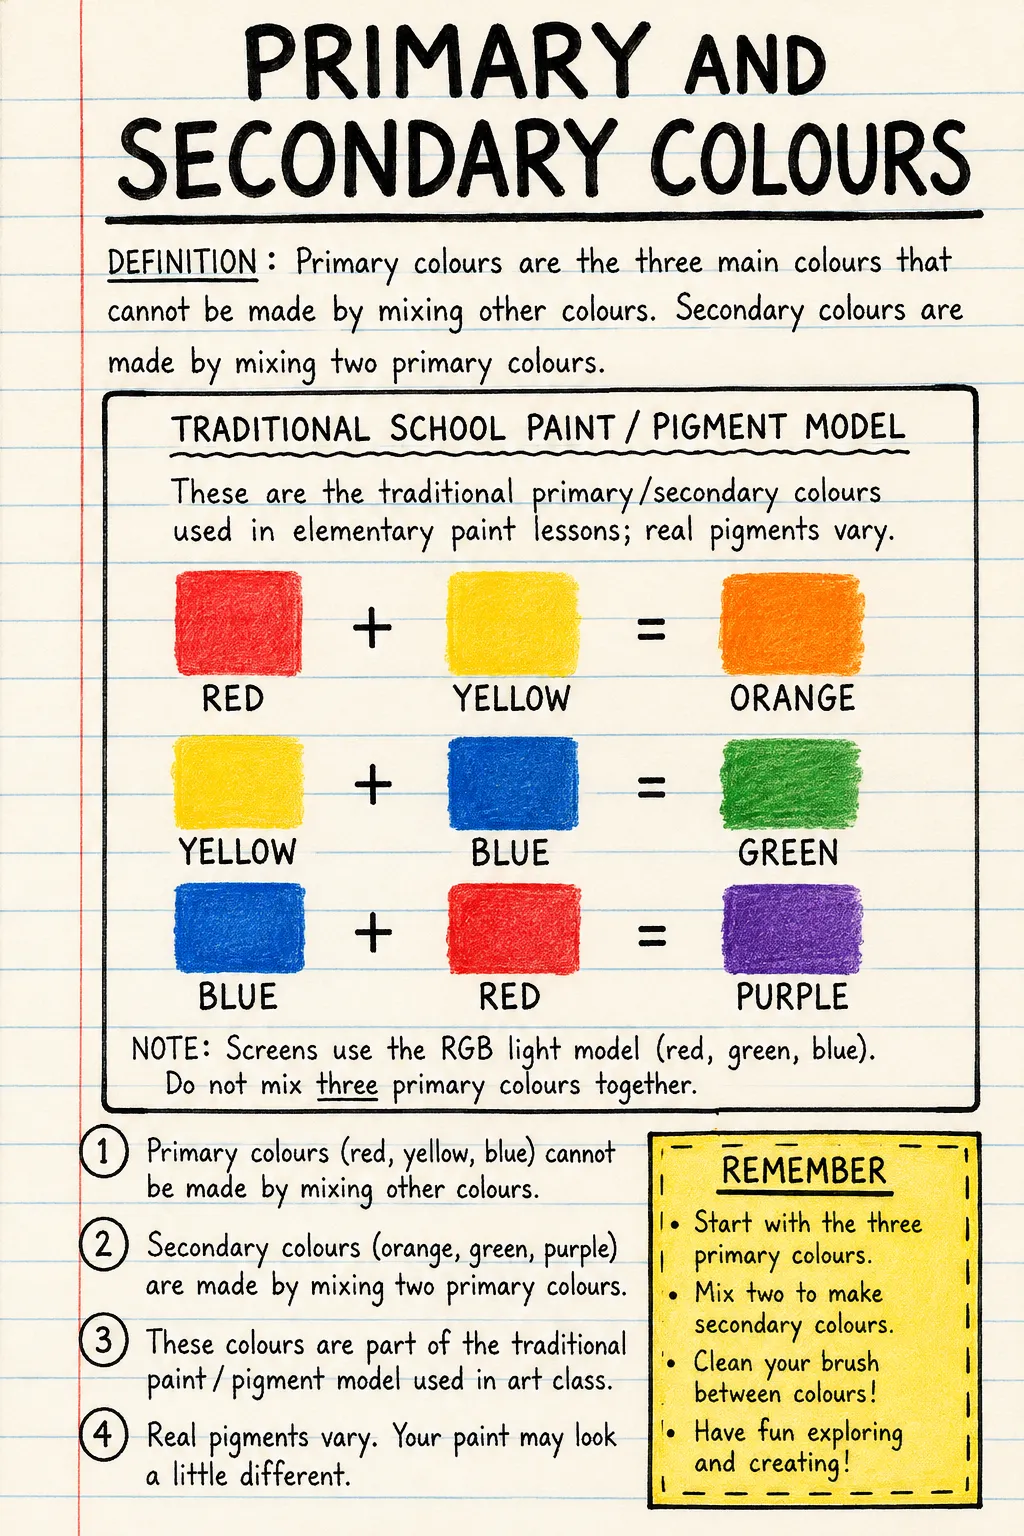 PRIMARY AND
SECONDARY COLOURS
DEFINITION: Primary colours are the three main colours that
cannot be made by mixing other colours. Secondary colours are
made by mixing two primary colours.
TRADITIONAL SCHOOL PAINT / PIGMENT MODEL
These are the traditional primary/secondary colours
used in elementary paint lessons; real pigments vary.
+ =
RED YELLOW ORANGE
+ =
YELLOW BLUE GREEN
+ =
BLUE RED PURPLE
NOTE: Screens use the RGB light model (red, green, blue).
Do not mix three primary colours together.
1 Primary colours (red, yellow, blue) cannot
be made by mixing other colours.
2 Secondary colours (orange, green, purple)
are made by mixing two primary colours.
3 These colours are part of the traditional
paint / pigment model used in art class.
4 Real pigments vary. Your paint may look
a little different.
REMEMBER
• Start with the three
primary colours.
• Mix two to make
secondary colours.
• Clean your brush
between colours!
• Have fun exploring
and creating!